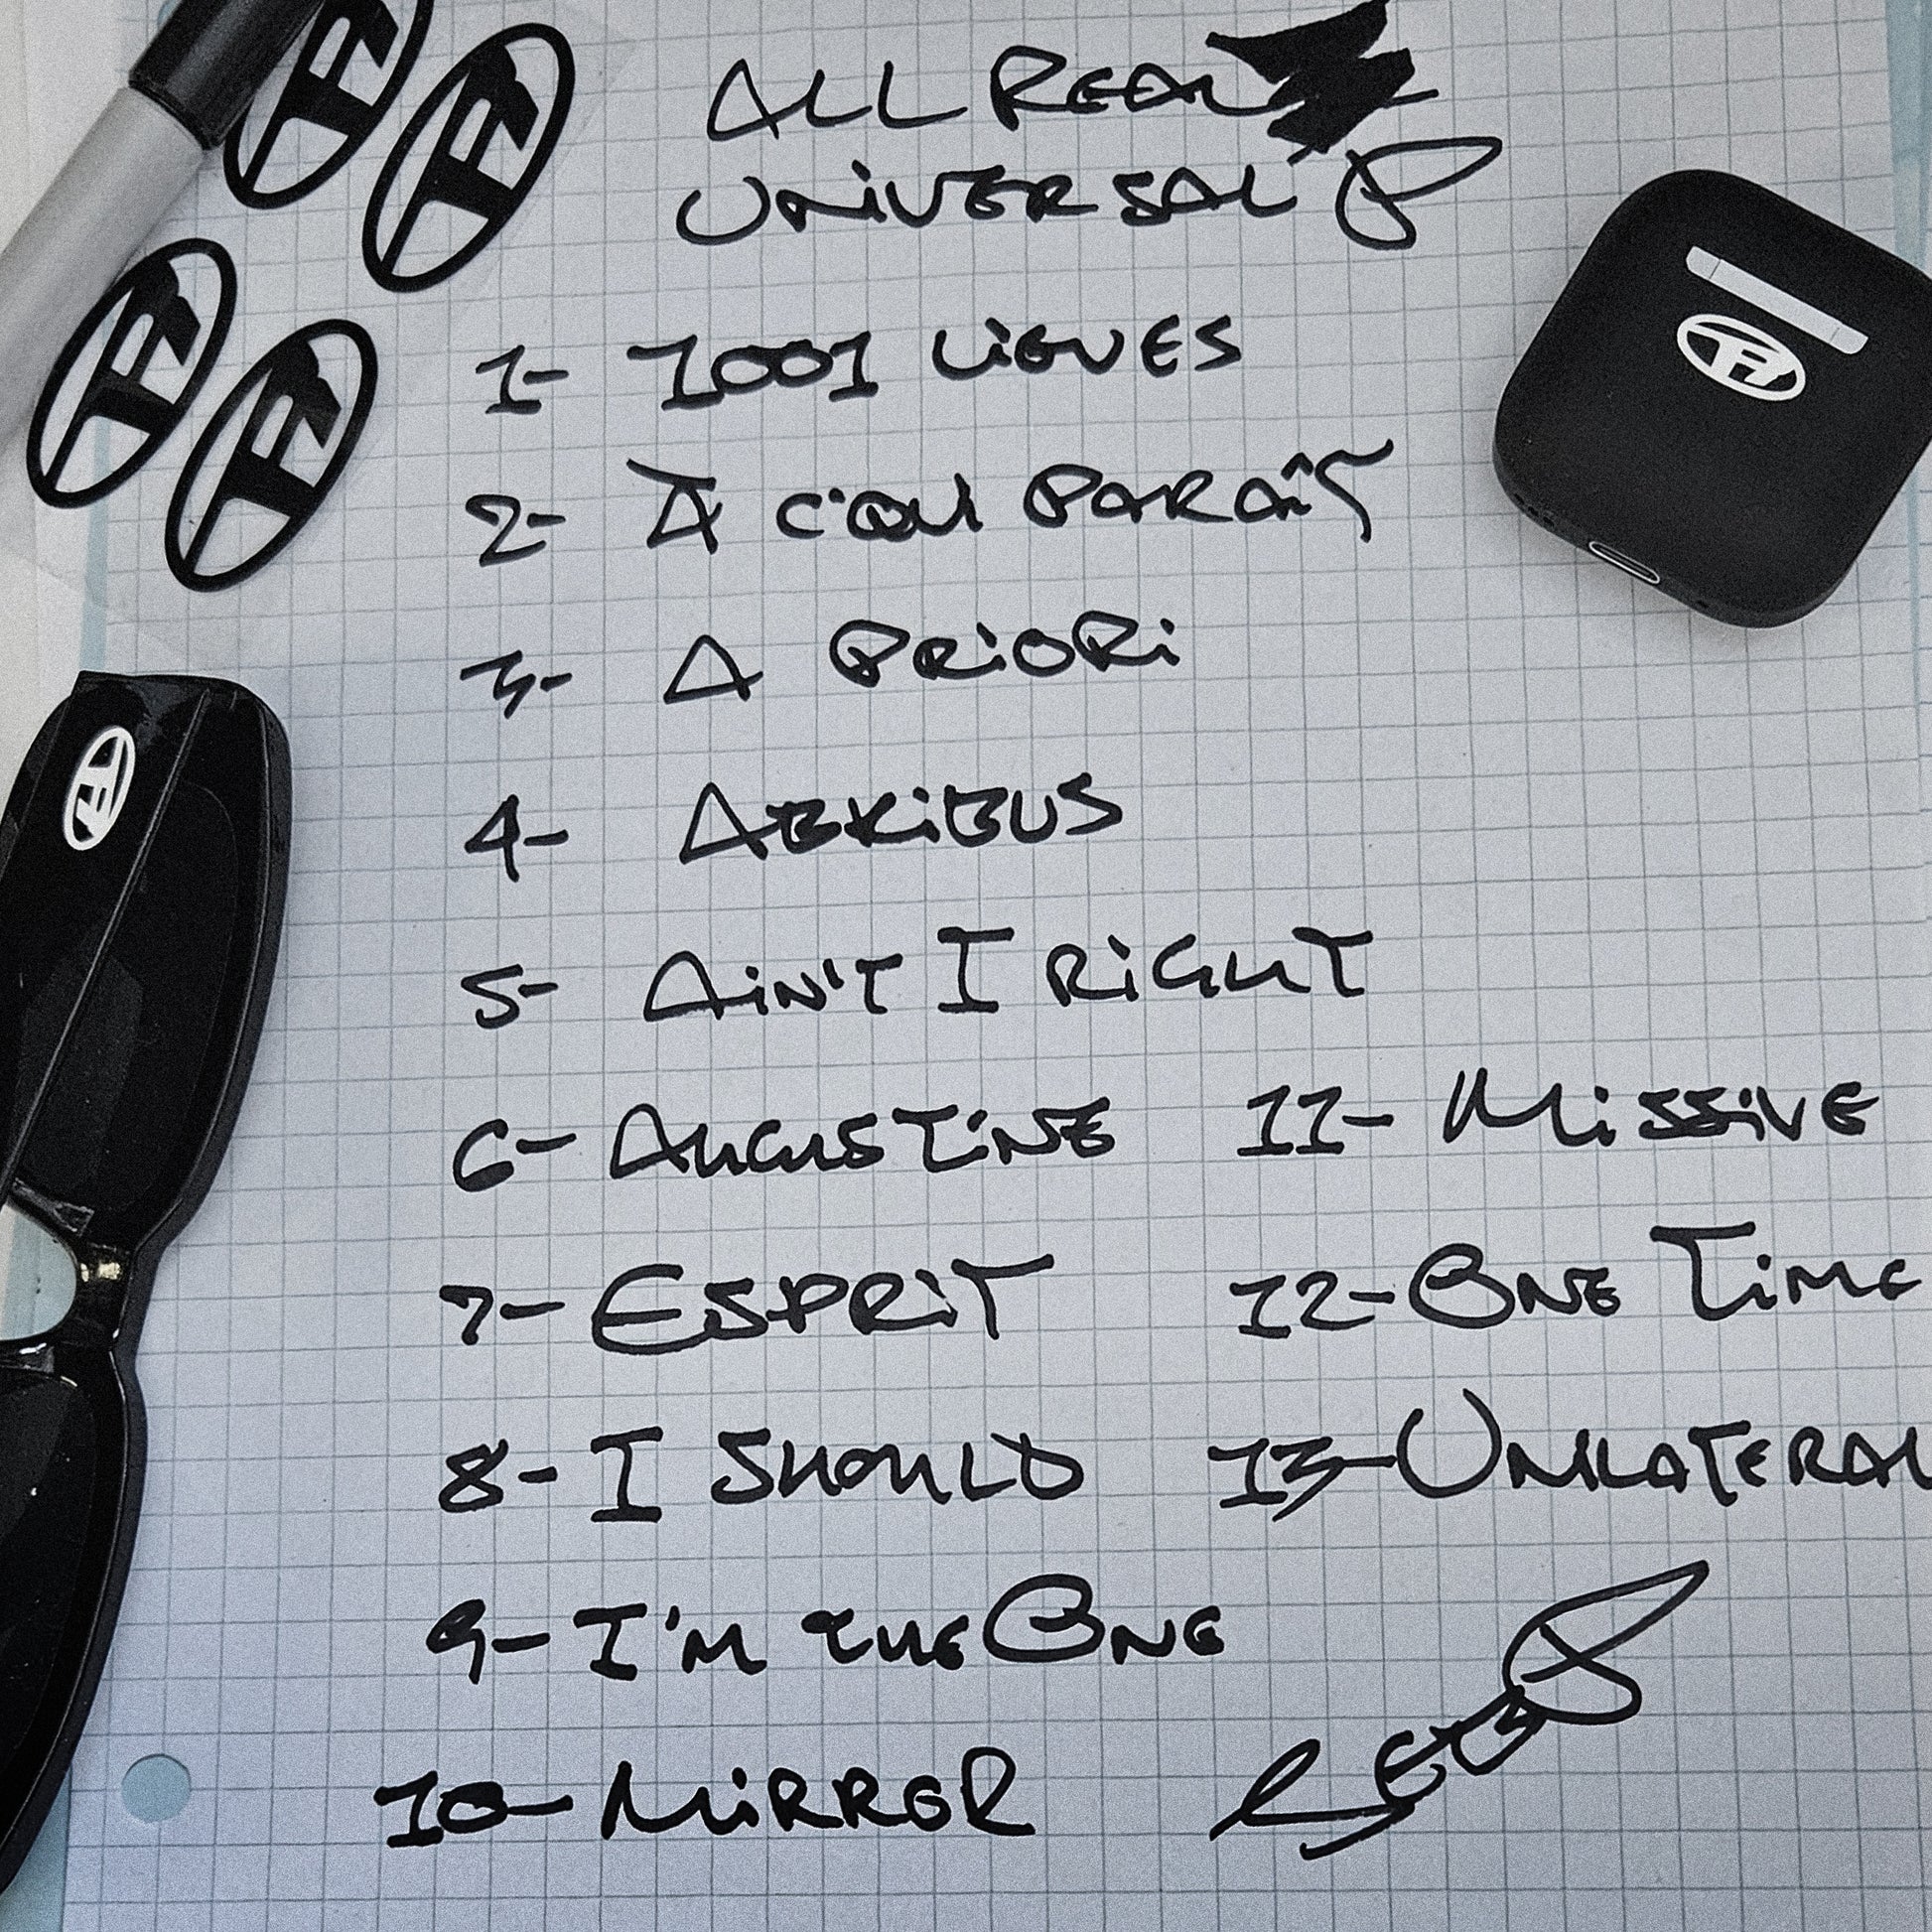 ALL REAL
UNIVERSAL
1- 1001 LIGUES
2- À C'QU'I PARAÎT
3- A PRIORI
4- ABRIBUS
5- AIN'T I RIGHT
6- AUGUSTINE
7- ESPRIT
8- I SHOULD
9- I'M THE ONE
10- MIRROR
11- MISSIVE
12- ONE TIME
13- UNILATERAL